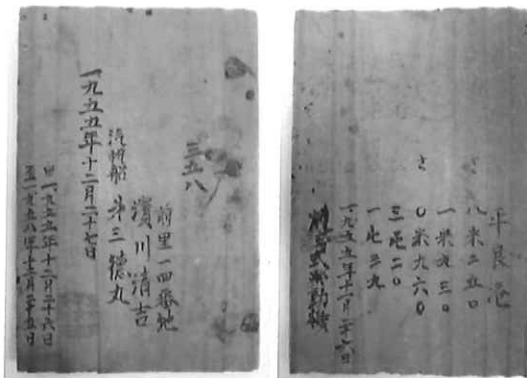 三五八
前里一四番地
濱川清吉
汽帆船 第三德丸
一九五五年十二月二十七日
自一九五五年十二月二十六日
至一九五八年十二月二十五日
平良港
八米二五〇
一米九三〇
〇米九六〇
三屯二〇
一屯三九
一九五五年十二月二六日